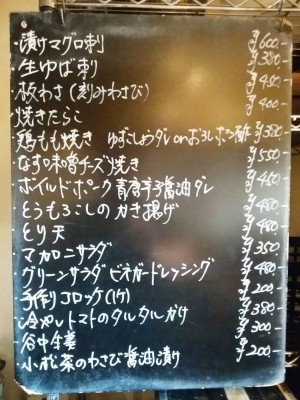 ・漬けマグロ刺 ¥600-
・生ゆば刺 ¥380-
・板わさ(刻みわさび) ¥450-
・焼きたらこ ¥400-
・鶏もも焼き ゆずしょうダレ orおろしポン酢 ¥380-
・なすの味噌チーズ焼き ¥550-
・ボイルドポーク青唐辛子醤油ダレ ¥450-
・とうもろこしのかき揚げ ¥480-
・とり天 ¥480-
・マカロニサラダ ¥350-
・グリーンサラダ ビネガードレッシング ¥480-
・手作りコロッケ(1ケ) ¥200-
・冷やしトマトのタルタルがけ ¥380-
・谷中生姜 ¥300-
・小松菜のわさび醤油漬け ¥200-